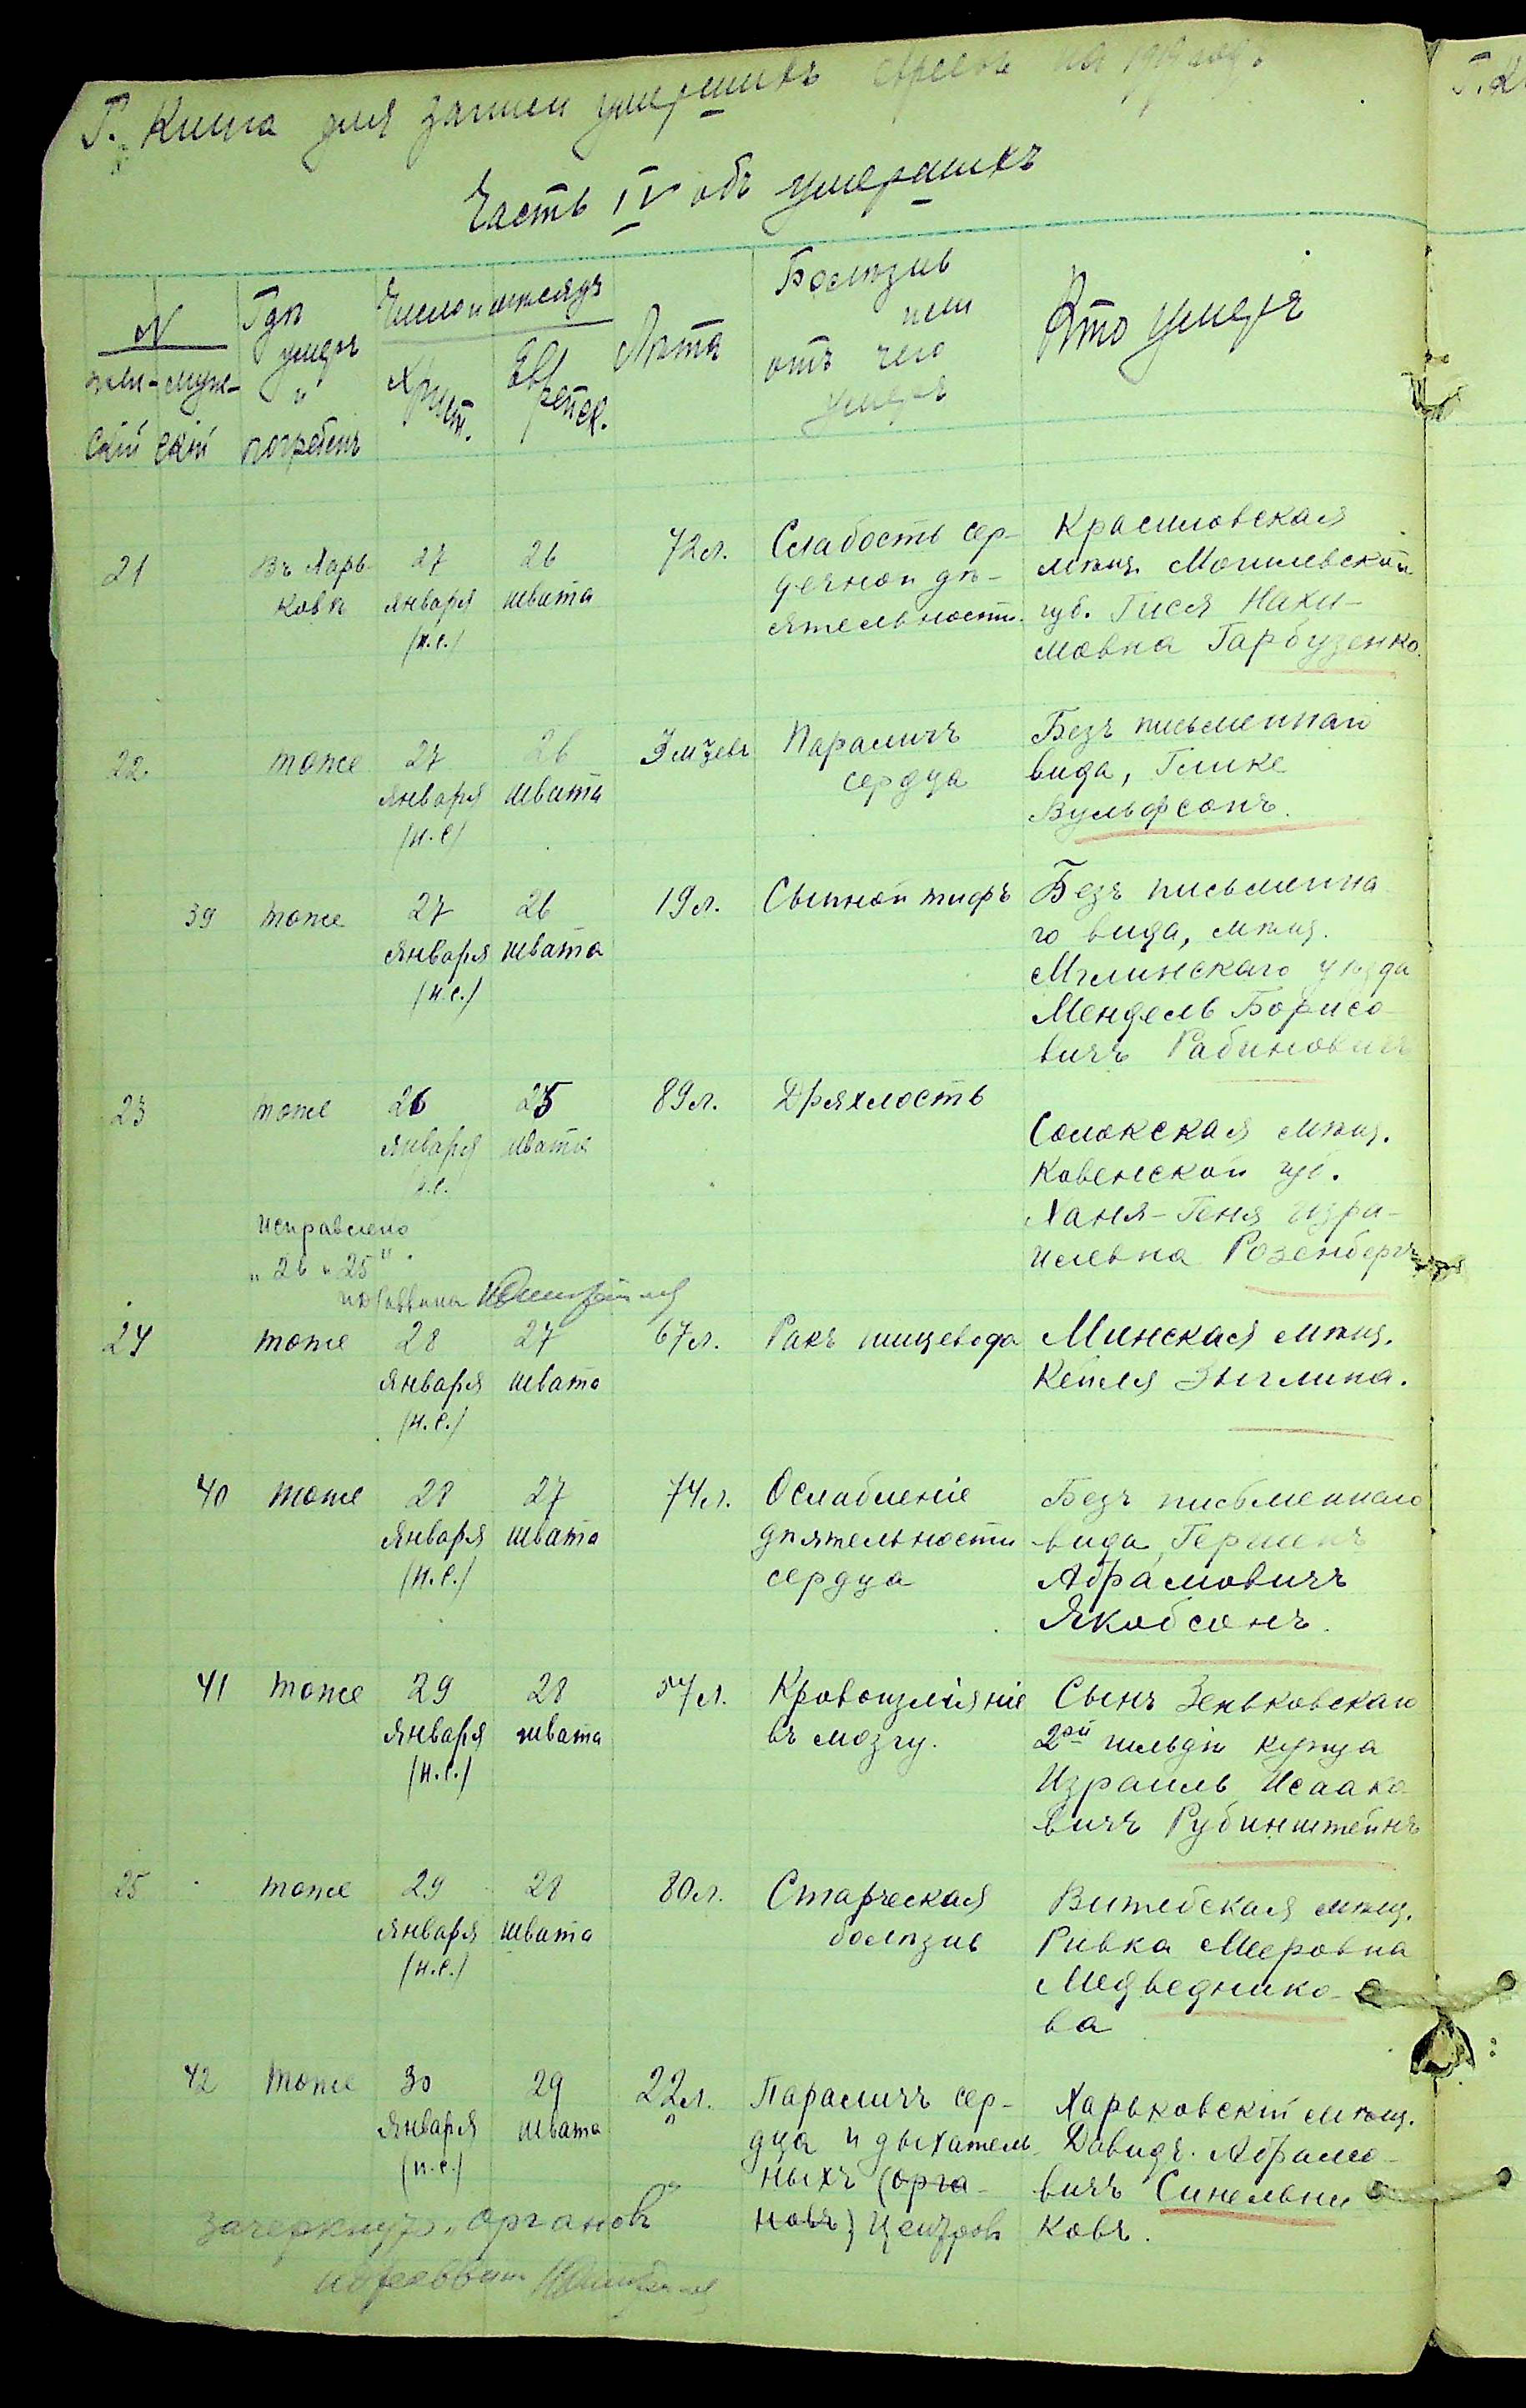 Г. Книга для записи умершихъ евреевъ на 1919 годъ
Часть IV объ умершихъ
N
жен- муже-
скій скій
Гдѣ
умеръ
и
погребенъ
Число и мѣсяцъ
Христ.
Еврейск.
Лѣта
Болѣзнь
или
отъ чего
умеръ
Кто умеръ
21 Въ Харь-
ковѣ
27
января
(н.с.)
26
швата
72 л.
Слабость сер-
дечной дѣ-
ятельности.
Красиловская
мѣщ. Могилевской
губ. Гися Нахи-
мовна Гарбузенко.
22 тоже
27
января
(н.с)
26
швата
Параличъ
сердца
Безъ письменнаго
вида, Глике
Вульфсонъ.
39 тоже
27
января
(н.с.)
26
швата
19 л.
Сыпной тифъ
Безъ письменна-
го вида, мѣщ.
Мглинскаго уѣзда
Мендель Борисо-
вичъ Рабиновичъ
23 тоже
26
января
н.с.
25
швата
89 л.
Дряхлость
Солокская мѣщ.
Ковенской губ.
Ханя-Геня Изра-
илевна Розенбергъ
Исправлено
„26 и 25".
24 тоже
28
января
(н.с.)
27
швата
67 л.
Ракъ пищевода
Минская мѣщ.
Кейля Зыглина.
40 тоже
28
января
(н.с.)
27
швата
74 л.
Ослабленіе
дѣятельности
сердца
Безъ письменнаго
вида, Гершенъ
Абрамовичъ
Якобсонъ.
41 тоже
29
января
(н.с.)
28
швата
57 л.
Кровоизліяніе
въ мозгу.
Сынъ Зеньковскаго
2ой гильдіи купца
Израиль Исаако-
вичъ Рубинштейнъ
25 тоже
29
января
(н.с.)
28
швата
80 л.
Старческая
болѣзнь
Витебская мѣщ.
Ривка Мееровна
Медведнико-
ва
42 тоже
30
января
(н.с.)
29
швата
22 л.
Параличъ сер-
дца и дыхатель-
ныхъ (орга-
новъ) центровъ
Харьковскій мѣщ.
Давидъ Абрамо-
вичъ Синельни-
ковъ.
зачеркнуто „органовъ"